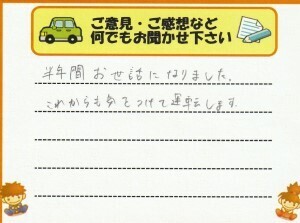 ご意見・ご感想など
何でもお聞かせ下さい
半年間お世話になりました。
これからも気をつけて運転します。